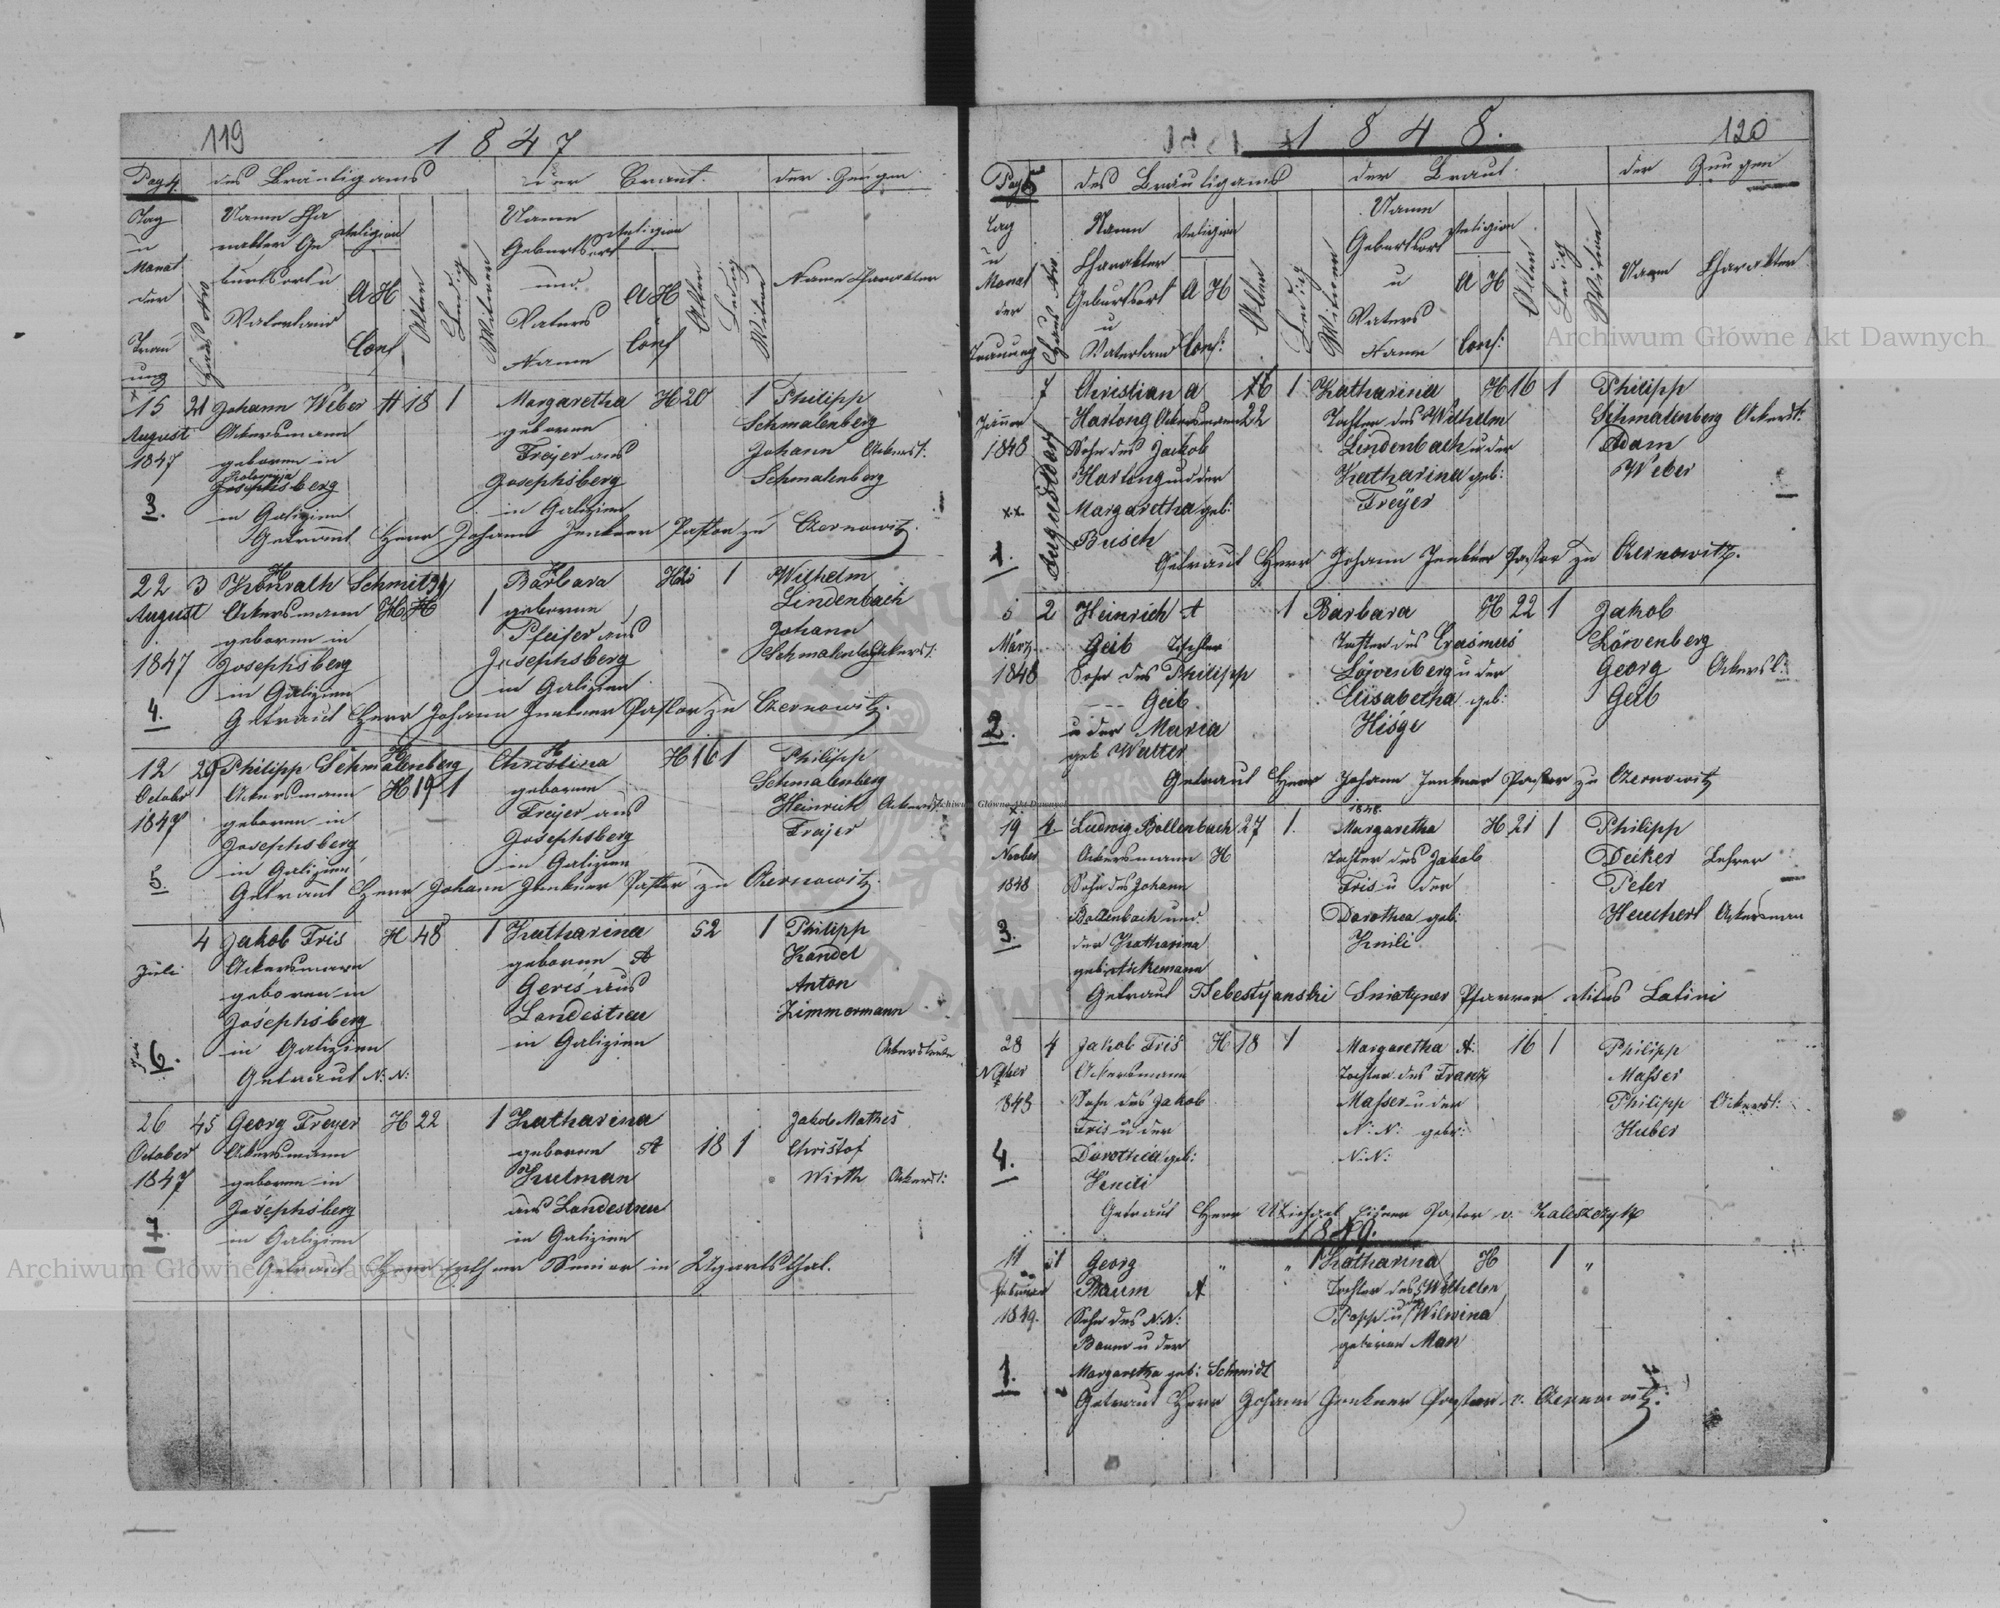 119
1847
Pag 4.
des Bräutigams
der Braut.
der Zeugen.
Tag
u
Monat
der
Trau
ung
Haus Nro
Name Cha
rakter Ge
burtsort u
Vaterland
Religion
A H
Conf
Alter
Ledig
Witwer
Name
Geburtsort
und
Vaters
Name
Religion
A H
Conf
Alter
Ledig
Witwe
Name Charakter
15 21 Johann Weber H 18 1 Margaretha H 20 1 Philipp
August Ackersmann geborene Schmalenberg
1847 geboren in Freyer aus Johann Ackersl:
Josephsberg Josephsberg Schmalenberg
3. in Galizien in Galizien
Getraut Herr Johann Jenkner Pastor zu Czernowitz.
22 3 Konrath Schmit H Barbara H 1 Wilhelm
August Ackersmann H 1 geborene Lindenbach
geboren in Pfeifer aus Johann
1847 Josephsberg Josephsberg Schmalenberg Ackersl:
in Galizien in Galizien
4. Getraut Herr Johann Jenkner Pastor zu Czernowitz.
12 29 Philipp Schmalenberg Christina H 16 1 Philipp
October Ackersmann H 19 1 geborene Schmalenberg
1847 geboren in Freyer aus Heinrich Ackersl
Josephsberg Josephsberg Freyer
in Galizien in Galizien
5. Getraut Herr Johann Jenkner Pastor zu Czernowitz.
4 Jakob Fris H 48 1 Katharina 52 1 Philipp
Juli Ackersmann geborene A Kandel
geboren in Geris aus Anton
Josephsberg Landestreu Zimmermann
6. in Galizien in Galizien Ackersleute
Getraut N: N:
26 45 Georg Freyer H 22 1 Katharina Jakob Mathes
October Ackersmann geborene A 18 1 Christof
1847 geboren in Kulman Wirth Ackersl:
Josephsberg aus Landestreu
7. in Galizien in Galizien
Getraut Herr Senior in Ugartsthal.
120
1848.
Pag 5
des Bräutigams
der Braut.
der Zeugen
Tag
u
Monat
der
Trauung
Haus Nro
Name
Charakter
Geburtsort
u
Vaterland
Religion
A H
Conf:
Alter
Ledig
Witwer
Name
Geburtsort
u
Vaters
Name
Religion
A H
Conf:
Alter
Ledig
Witwe
Name Charakter
7 Christian A 1 Katharina H 16 1 Philipp
Jänner Hartong Ackersmann 22 Tochter des Wilhelm Schmalenberg Ackersl:
1848 Sohn des Jackob Lindenbach u der Adam
Hartong und der Katharina geb: Weber
xx Margaretha geb: Freyer
1. Augustdorf Busch
Getraut Herr Johann Jenkner Pastor zu Czernowitz.
5 2 Heinrich A 1 Barbara H 22 1 Jakob
März Geib Tischler Tochter des Erasmus Löwenberg
1848 Sohn des Philipp Löwenberg u der Georg Ackersl:
Geib Elisabetha geb: Geib
2. u der Maria Hisge
geb Walter
Getraut Herr Johann Jenkner Pastor zu Czernowitz
1848.
19 4 Ludwig Bollenbach 27 1. Margaretha H 21 1 Philipp
Ackersmann H Tochter des Jakob Decker Lehrer
1848 Sohn des Johann Fris u der Peter
Bollenbach und Dorothea geb: Heuchert Ackersman
3. der Katharina Knili
Getraut Sniatyner Pfarrer Ritus Latini
28 4 Jakob Fris H 18 1 Margaretha A: 16 1 Philipp
Ackersmann Tochter des Frantz Masser
1848 Sohn des Jakob Masser u der Philipp Ackersl:
Fris u der N: N: geb: Huber
4. Dorothea geb: N: N:
Getraut Herr Michael Pastor v. Zaleszczyk
1849.
11 Georg " " 1 Katharina H 1 "
Februar Baum A Tochter des Wilhelm
1849. Sohn des N: N: Popp u der
Baum u der geboren Man
1. Margaretha geb: Schmidt
Getraut Herr Johann Jenkner Pastor v. Czernowitz.
Archiwum Główne Akt Dawnych
Archiwum Główne Akt Dawnych
Archiwum Główne Akt Dawnych